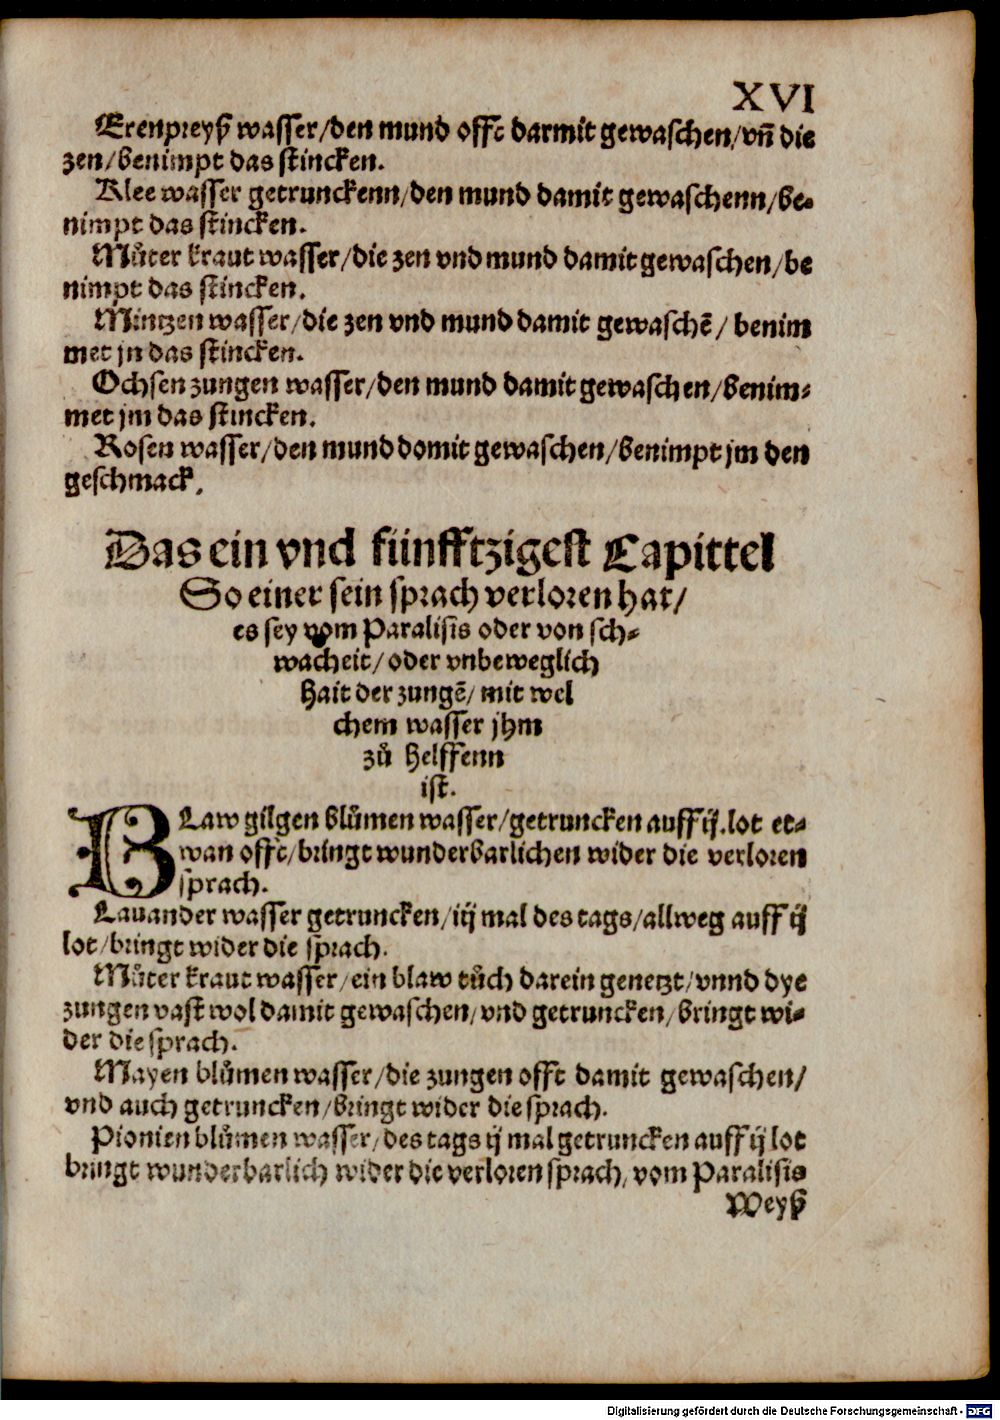 XVI
Erenpreyß wasser/den mund offt darmit gewaschen/vñ die
zen/benimpt das stincken.
Klee wasser getrunckenn/den mund damit gewaschenn/be-
nimpt das stincken.
Můter kraut wasser/die zen vnd mund damit gewaschen/be
nimpt das stincken.
Mintzen wasser/die zen vnd mund damit gewaschẽ/ benim
met jn das stincken.
Ochsen zungen wasser/den mund damit gewaschen/benim-
met jm das stincken.
Rosen wasser/den mund domit gewaschen/benimpt jm den
geschmack.
Das ein vnd fünfftzigest Capittel
So einer sein sprach verloren hat/
es sey vom Paralisis oder von sch-
wacheit/oder vnbeweglich
hait der zungẽ/ mit wel
chem wasser jhm
zů helffenn
ist.
BLaw gilgen blůmen wasser/getruncken auff ij.lot et-
wan offt/bringt wunderbarlichen wider die verloren
sprach.
Lauander wasser getruncken/iij mal des tags/allweg auff ij
lot/bringt wider die sprach.
Můter kraut wasser/ein blaw tůch darein genetzt/vnnd dye
zungen vast wol damit gewaschen/vnd getruncken/bringt wi-
der die sprach.
Mayen blůmen wasser/die zungen offt damit gewaschen/
vnd auch getruncken/bringt wider die sprach.
Pionien blůmen wasser/des tags ij mal getruncken auff ij lot
bringt wunderbarlich wider die verloren sprach/vom Paralisis
Weyß
Digitalisierung gefördert durch die Deutsche Forschungsgemeinschaft - DFG